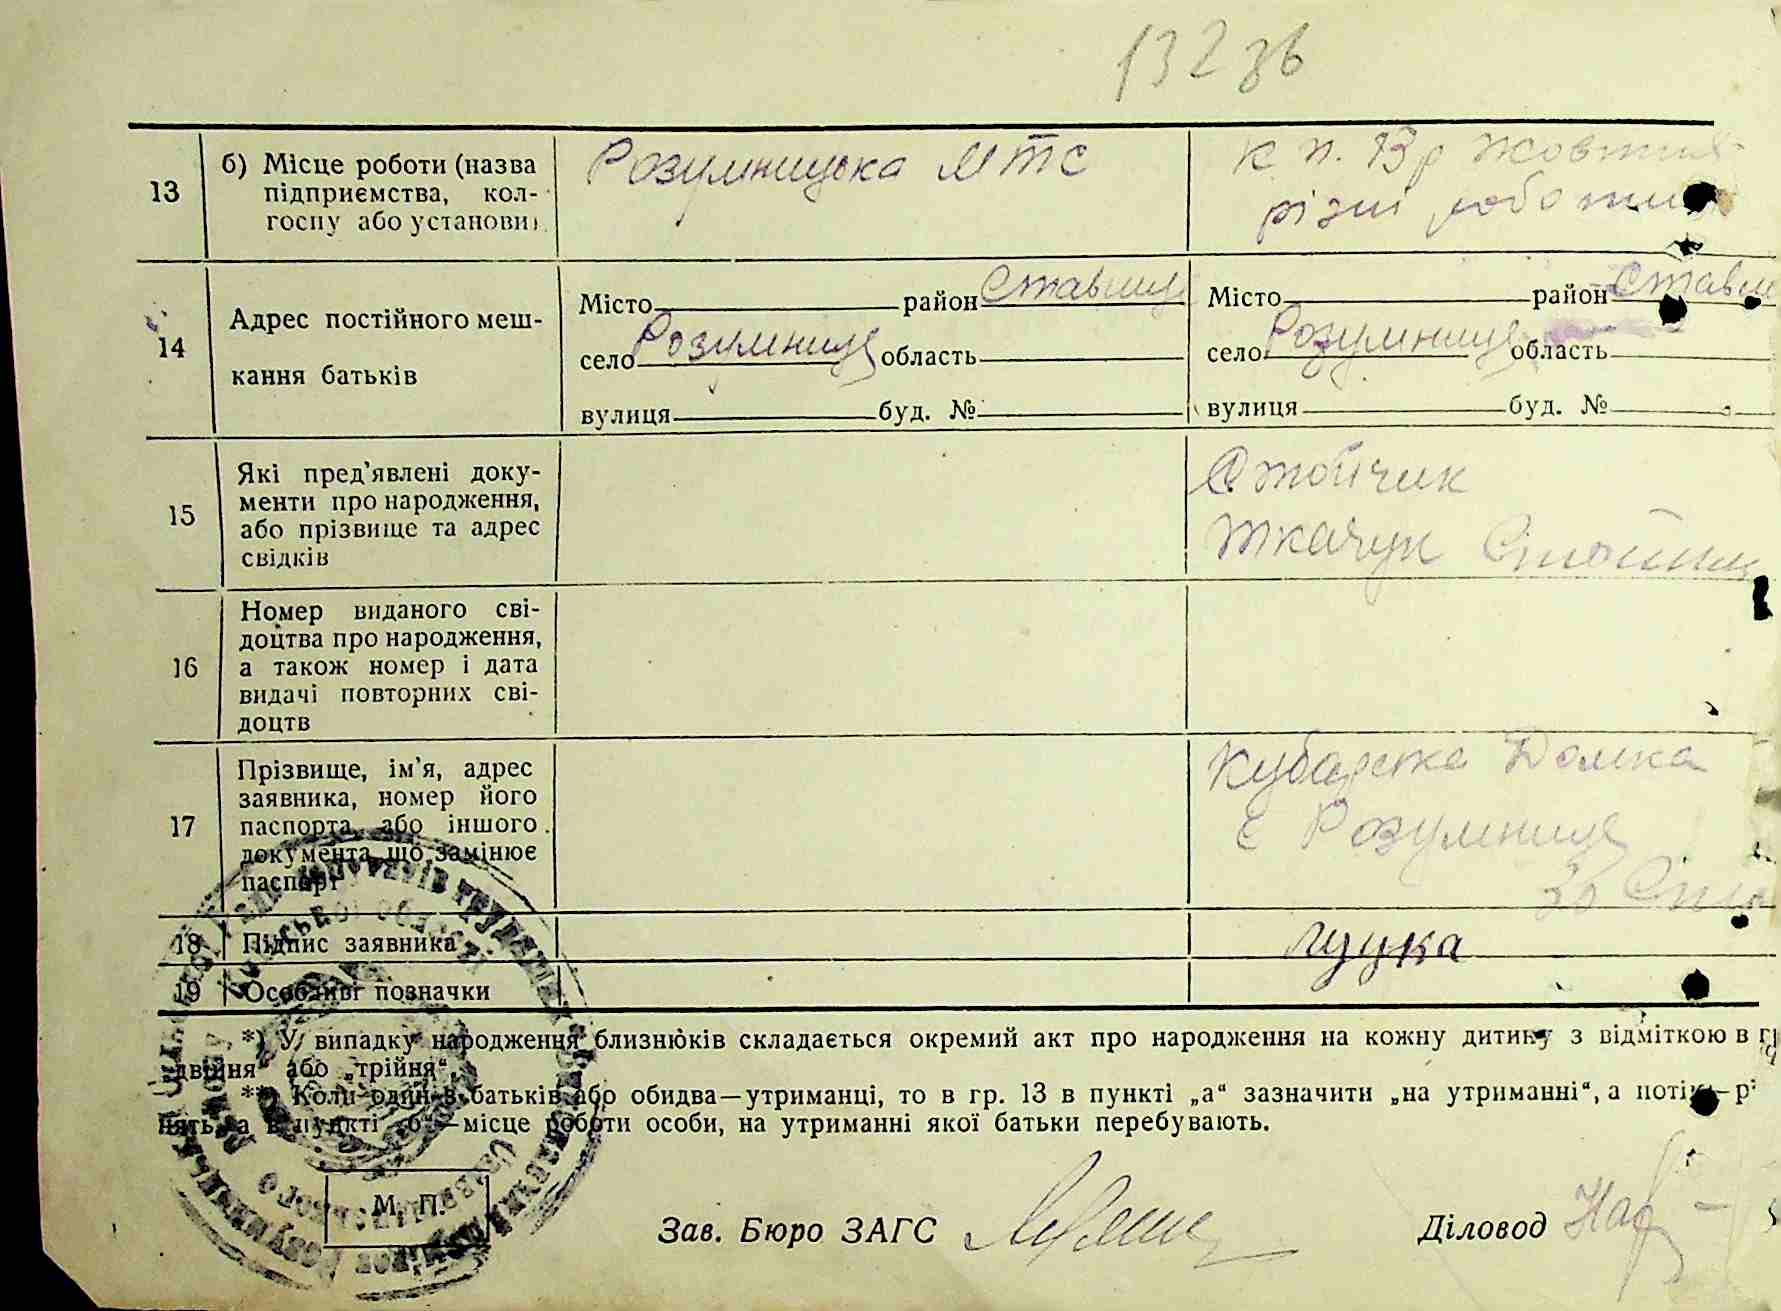 132 зв
13
б) Місце роботи (назва
підприємства, кол-
госпу або установи)
Розумницька МТС
к п. 13 р Жовтня
різні роботи
14
Адрес постійного меш-
кання батьків
Місто район Ставище
село Розумниця область
вулиця буд. №
Місто район Ставищ
село Розумниця область
вулиця буд. №
15
Які пред'явлені доку-
менти про народження,
або прізвище та адрес
свідків
Стойчик
Ткачук
16
Номер виданого сві-
доцтва про народження,
а також номер і дата
видачі повторних сві-
доцтв
17
Прізвище, ім'я, адрес
заявника, номер його
паспорта або іншого
документа, що замінює
паспорт
Домка
с Розумниця
18
Підпис заявника
19
Особливі позначки
*) У випадку народження близнюків складається окремий акт про народження на кожну дитину з відміткою в гр
двійня" або „трійня".
**) Коли один з батьків або обидва—утриманці, то в гр. 13 в пункті „а" зазначити „на утриманні", а потім—р
нять, а в пункті „б"—місце роботи особи, на утриманні якої батьки перебувають.
М. П.
Зав. Бюро ЗАГС
Діловод